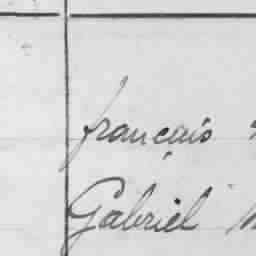 français
Gabriel